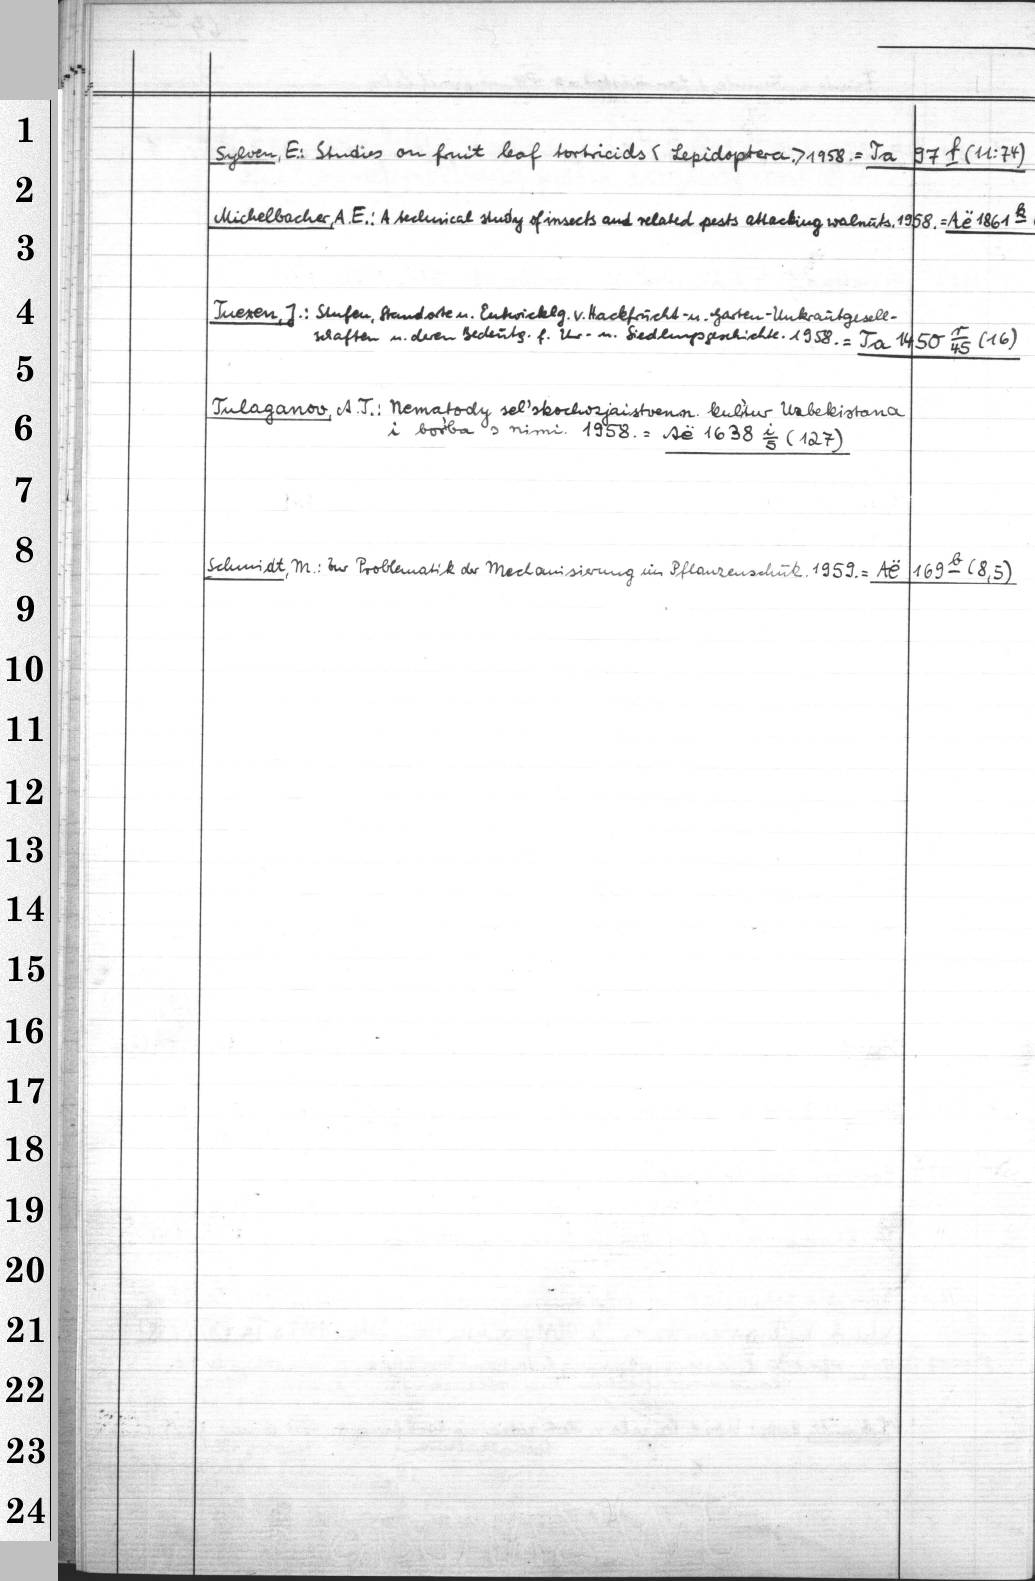 1
Sylven, E.: Studies on fruit leaf tortricids < Lepidoptera.> 1958. = Ta 97 f (11:74)
2
Michelbacher, A.E.: A technical study of insects and related pests attacking walnuts. 1958. = Aë 1861 k
3
4
Tuexen, J.: Stufen, Standorte u. Entwicklg. v. Hackfrucht- u. Garten-Unkrautgesell-
schaften u. deren Bedeutg. f. Ur- u. Siedlungsgeschichte. 1958. = Ta 1450 r/45 (16)
5
Tulaganov, A.T.: Nematody sel'skochozjaistvenn. kul'tur Uzbekistana
6
i bor'ba s nimi. 1958. = Aë 1638 i/5 (127)
7
8
Schmidt, M.: Zur Problematik der Mechanisierung im Pflanzenschutz. 1959. = Aë 169 b (8,5)
9
10
11
12
13
14
15
16
17
18
19
20
21
22
23
24